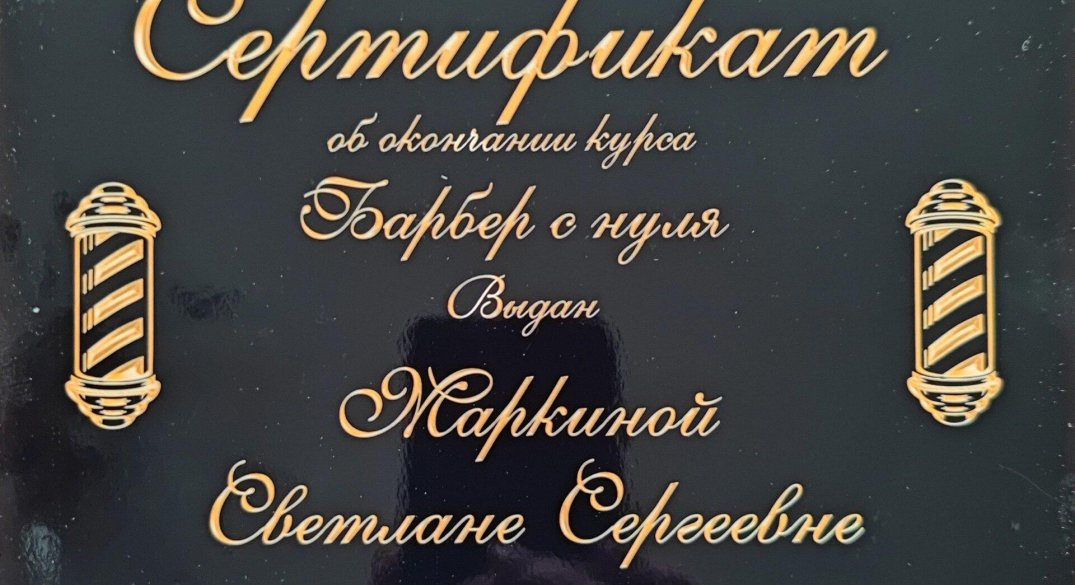 Сертификат
об окончании курса
Барбер с нуля
Выдан
Маркиной
Светлане Сергеевне